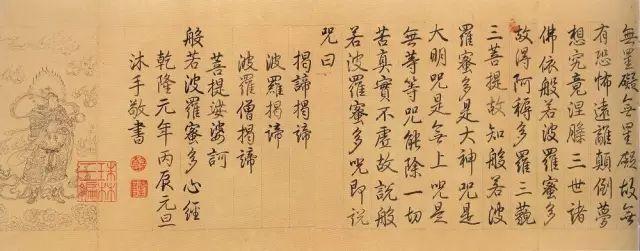 無罣礙無罣礙故無
有恐怖遠離顛倒夢
想究竟涅槃三世諸
佛依般若波羅蜜多
故得阿耨多羅三藐
三菩提故知般若波
羅蜜多是大神咒是
大明咒是無上咒是
無等等咒能除一切
苦真實不虛故說般
若波羅蜜多咒即說
咒曰
揭諦揭諦
波羅揭諦
波羅僧揭諦
菩提娑婆訶
般若波羅蜜多心經
乾隆元年丙辰元旦
沐手敬書
珠林
三編